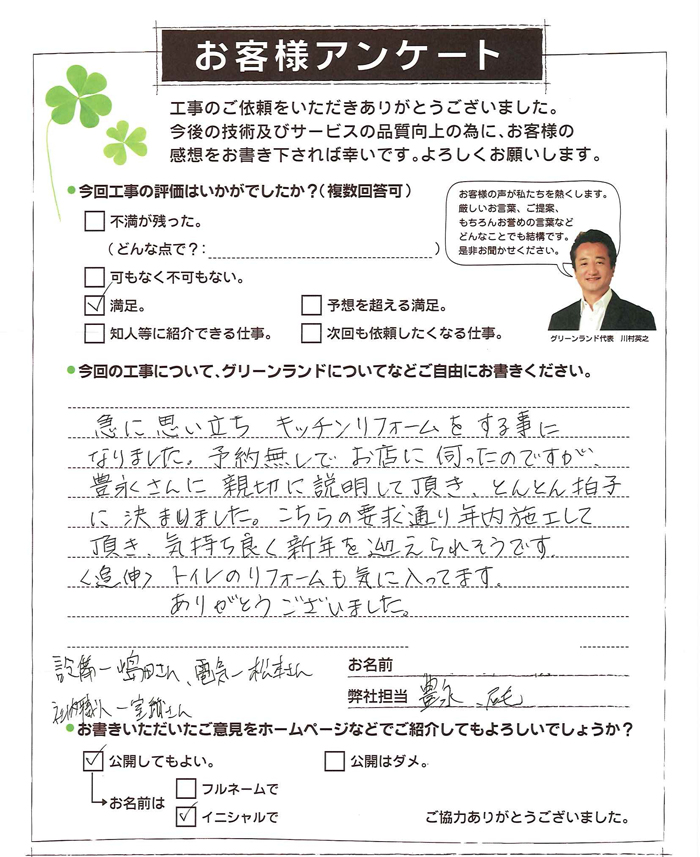 お客様アンケート
工事のご依頼をいただきありがとうございました。
今後の技術及びサービスの品質向上の為に、お客様の
感想をお書き下されば幸いです。よろしくお願いします。
●今回工事の評価はいかがでしたか？（複数回答可）
不満が残った。
（どんな点で？：　）
可もなく不可もない。
満足。
予想を超える満足。
知人等に紹介できる仕事。
次回も依頼したくなる仕事。
お客様の声が私たちを熱くします。
厳しいお言葉、ご提案、
もちろんお誉めの言葉など
どんなことでも結構です。
是非お聞かせください。
グリーンランド代表　川村英之
●今回の工事について、グリーンランドについてなどご自由にお書きください。
急に思い立ち キッチンリフォームをする事に
なりました。予約無しで お店に伺ったのですが、
豊永さんに 親切に説明して頂き、とんとん拍子
に 決まりました。こちらの要求通り年内施工して
頂き、気持ち良く新年を迎えられそうです。
〈追伸〉 トイレのリフォームも気に入ってます。
ありがとうございました。
設備ー嶋田さん、電気ー松本さん
さん
お名前
弊社担当 豊永
●お書きいただいたご意見をホームページなどでご紹介してもよろしいでしょうか？
公開してもよい。
公開はダメ。
お名前は
フルネームで
イニシャルで
ご協力ありがとうございました。